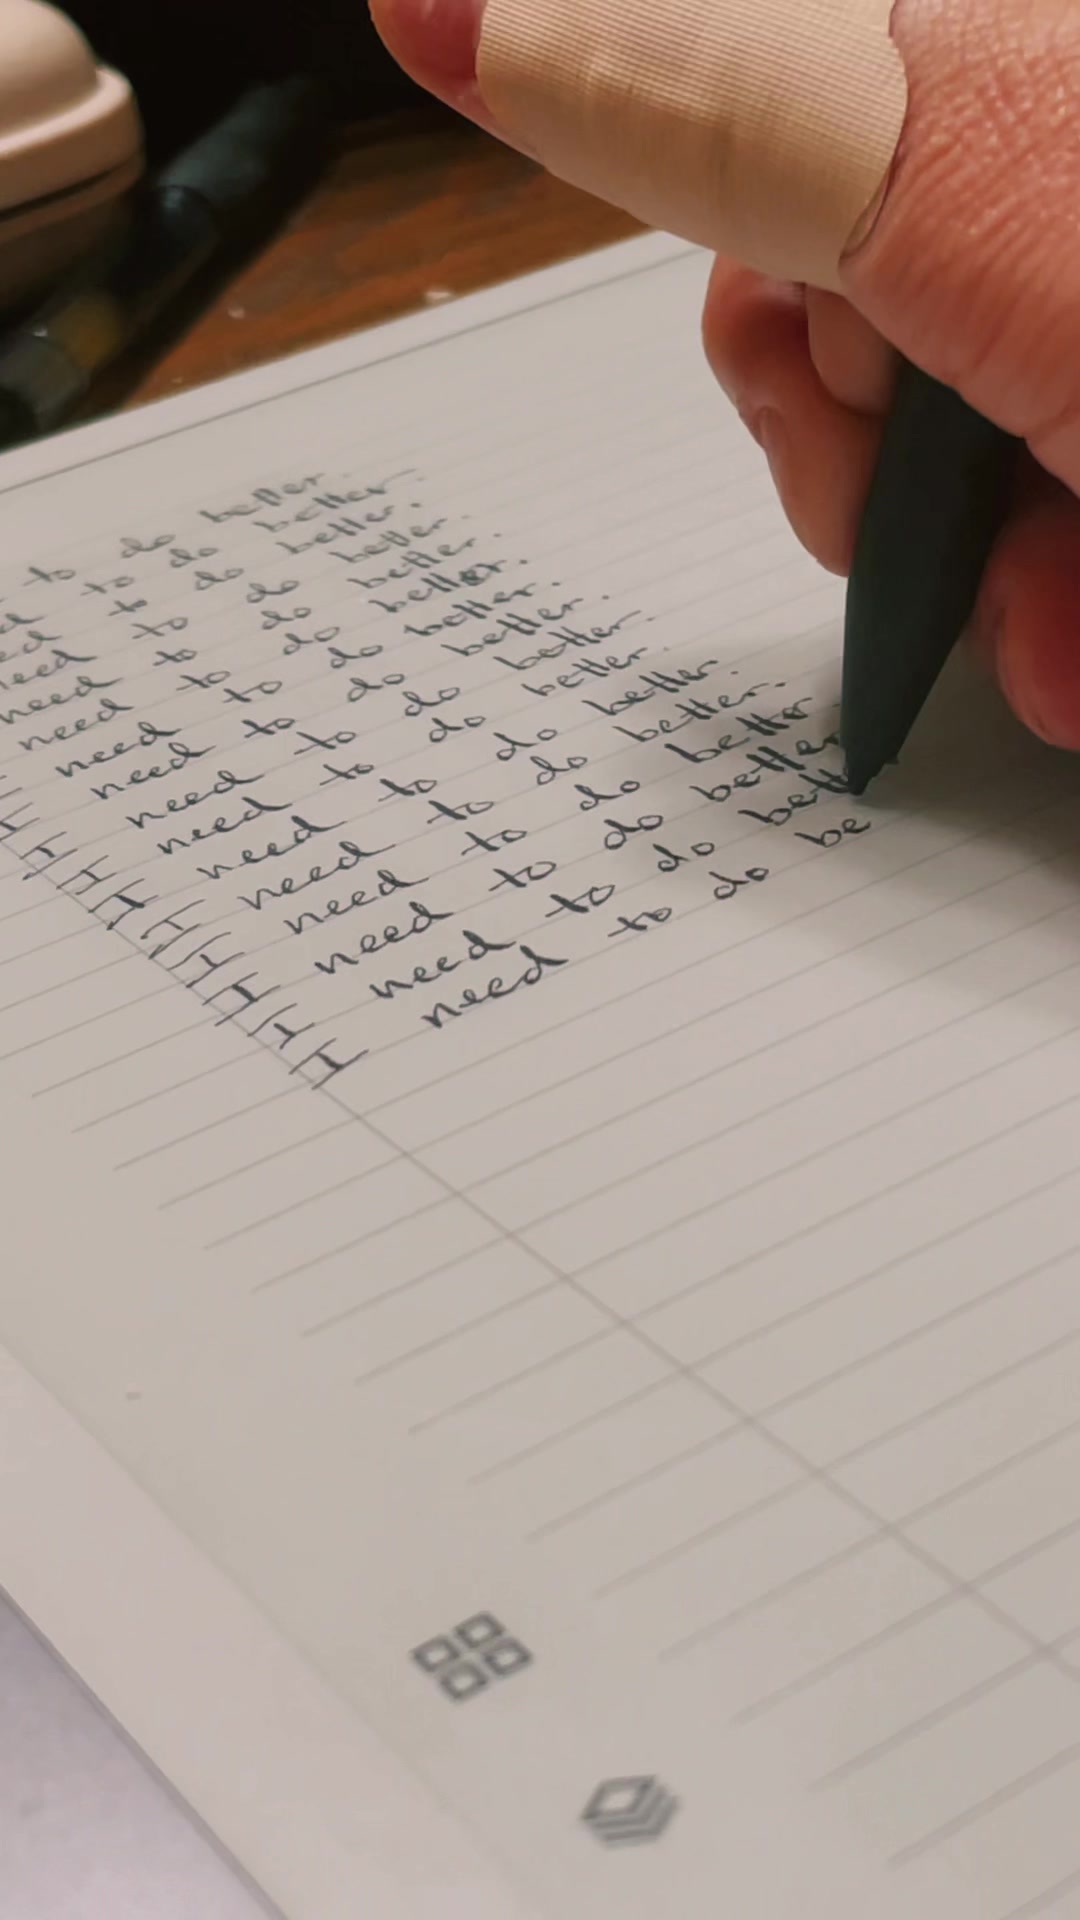 to do better.
to do better.
to do better.
need to do better.
need to do better.
need to do better.
need to do better.
I need to do better.
I need to do better.
I need to do better.
I need to do better.
I need to do better.
I need to do better
I need to do better
I need to do bett
I need to do be